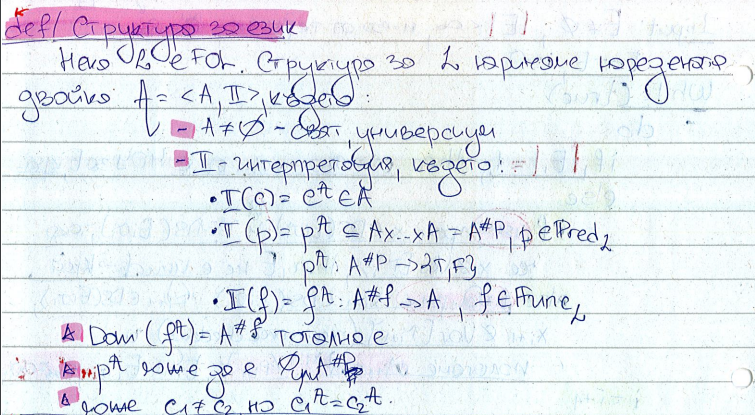 def/ Структура за език
Нека L е FOL. Структура за L наричаме наредената
двойка A = <A, II>, където:
- A ≠ ∅ - свят, универсум
- II интерпретация, където:
• II(c) = c^A ∈ A
• II(p) = p^A ⊆ A×...×A = A^#p, p ∈ Pred_L
p^A : A^#p → {T, F}
• II(f) = f^A : A^#f → A, f ∈ Func_L
Δ Dom(f^A) = A^#f тотална е
Δ p^A може да е ∅ или A^#p
Δ може c₁ ≠ c₂, но c₁^A = c₂^A.